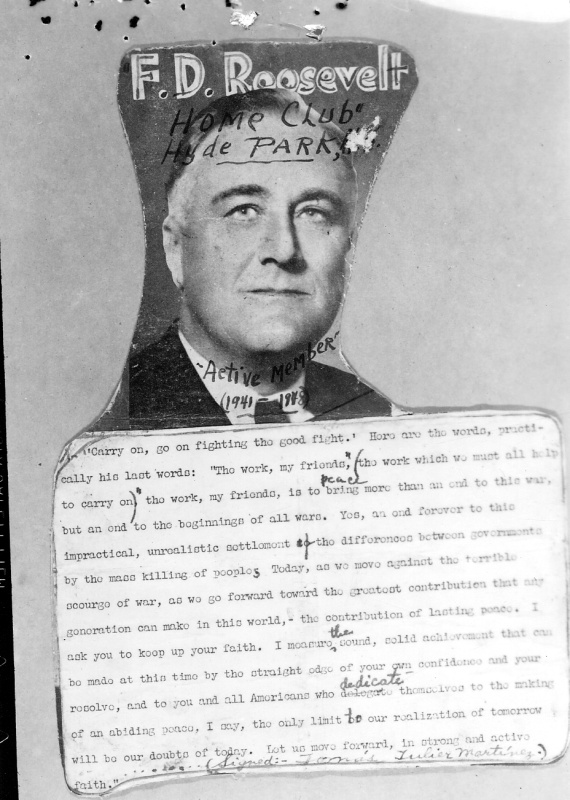 "F.D. Roosevelt
Home Club"
Hyde PARK,
"Active Member"
(1941 - 1948)
"'Carry on, go on fighting the good fight.' Here are the words, practi-
cally his last words: "The work, my friends," (the work which we must all help
peace
to carry on)" the work, my friends, is to bring more than an end to this war,
but an end to the beginnings of all wars. Yes, an end forever to this
impractical, unrealistic settlement of the differences between governments
by the mass killing of peoples Today, as we move against the terrible
scourge of war, as we go forward toward the greatest contribution that any
generation can make in this world,- the contribution of lasting peace. I
the
ask you to keep up your faith. I measure, sound, solid achievement that can
be made at this time by the straight edge of your own confidence and your
dedicate
resolve, and to you and all Americans who delegate themselves to the making
of an abiding peace, I say, the only limit to our realization of tomorrow
will be our doubts of today. Let us move forward, in strong and active
faith." (Signed:- Tomás Tulier Martínez.)